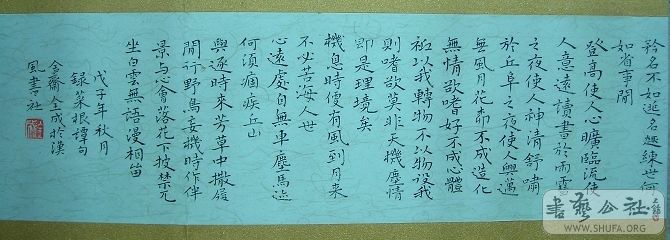 矜名不如逃名趣練世何
如省事閒
登高使人心曠臨流使
人意遠讀書於雨雪
之夜使人神清舒嘯
於丘阜之夜使人興邁
無風月花柳不成造化
無情欲嗜好不成心體
祗以我轉物不以物役我
則嗜欲莫非天機塵情
即是理境矣
機息時便有風到月来
不必苦海人世
心遠處自無車塵馬迹
何須痼疾丘山
興逐時來芳草中撒履
閒行野鳥忘機時作伴
景與心會落花下披襟兀
坐白雲無語漫相留
戊子年秋月
録菜根譚句
齋全成於漢
風書社
書藝公社
WWW.SHUFA.ORG